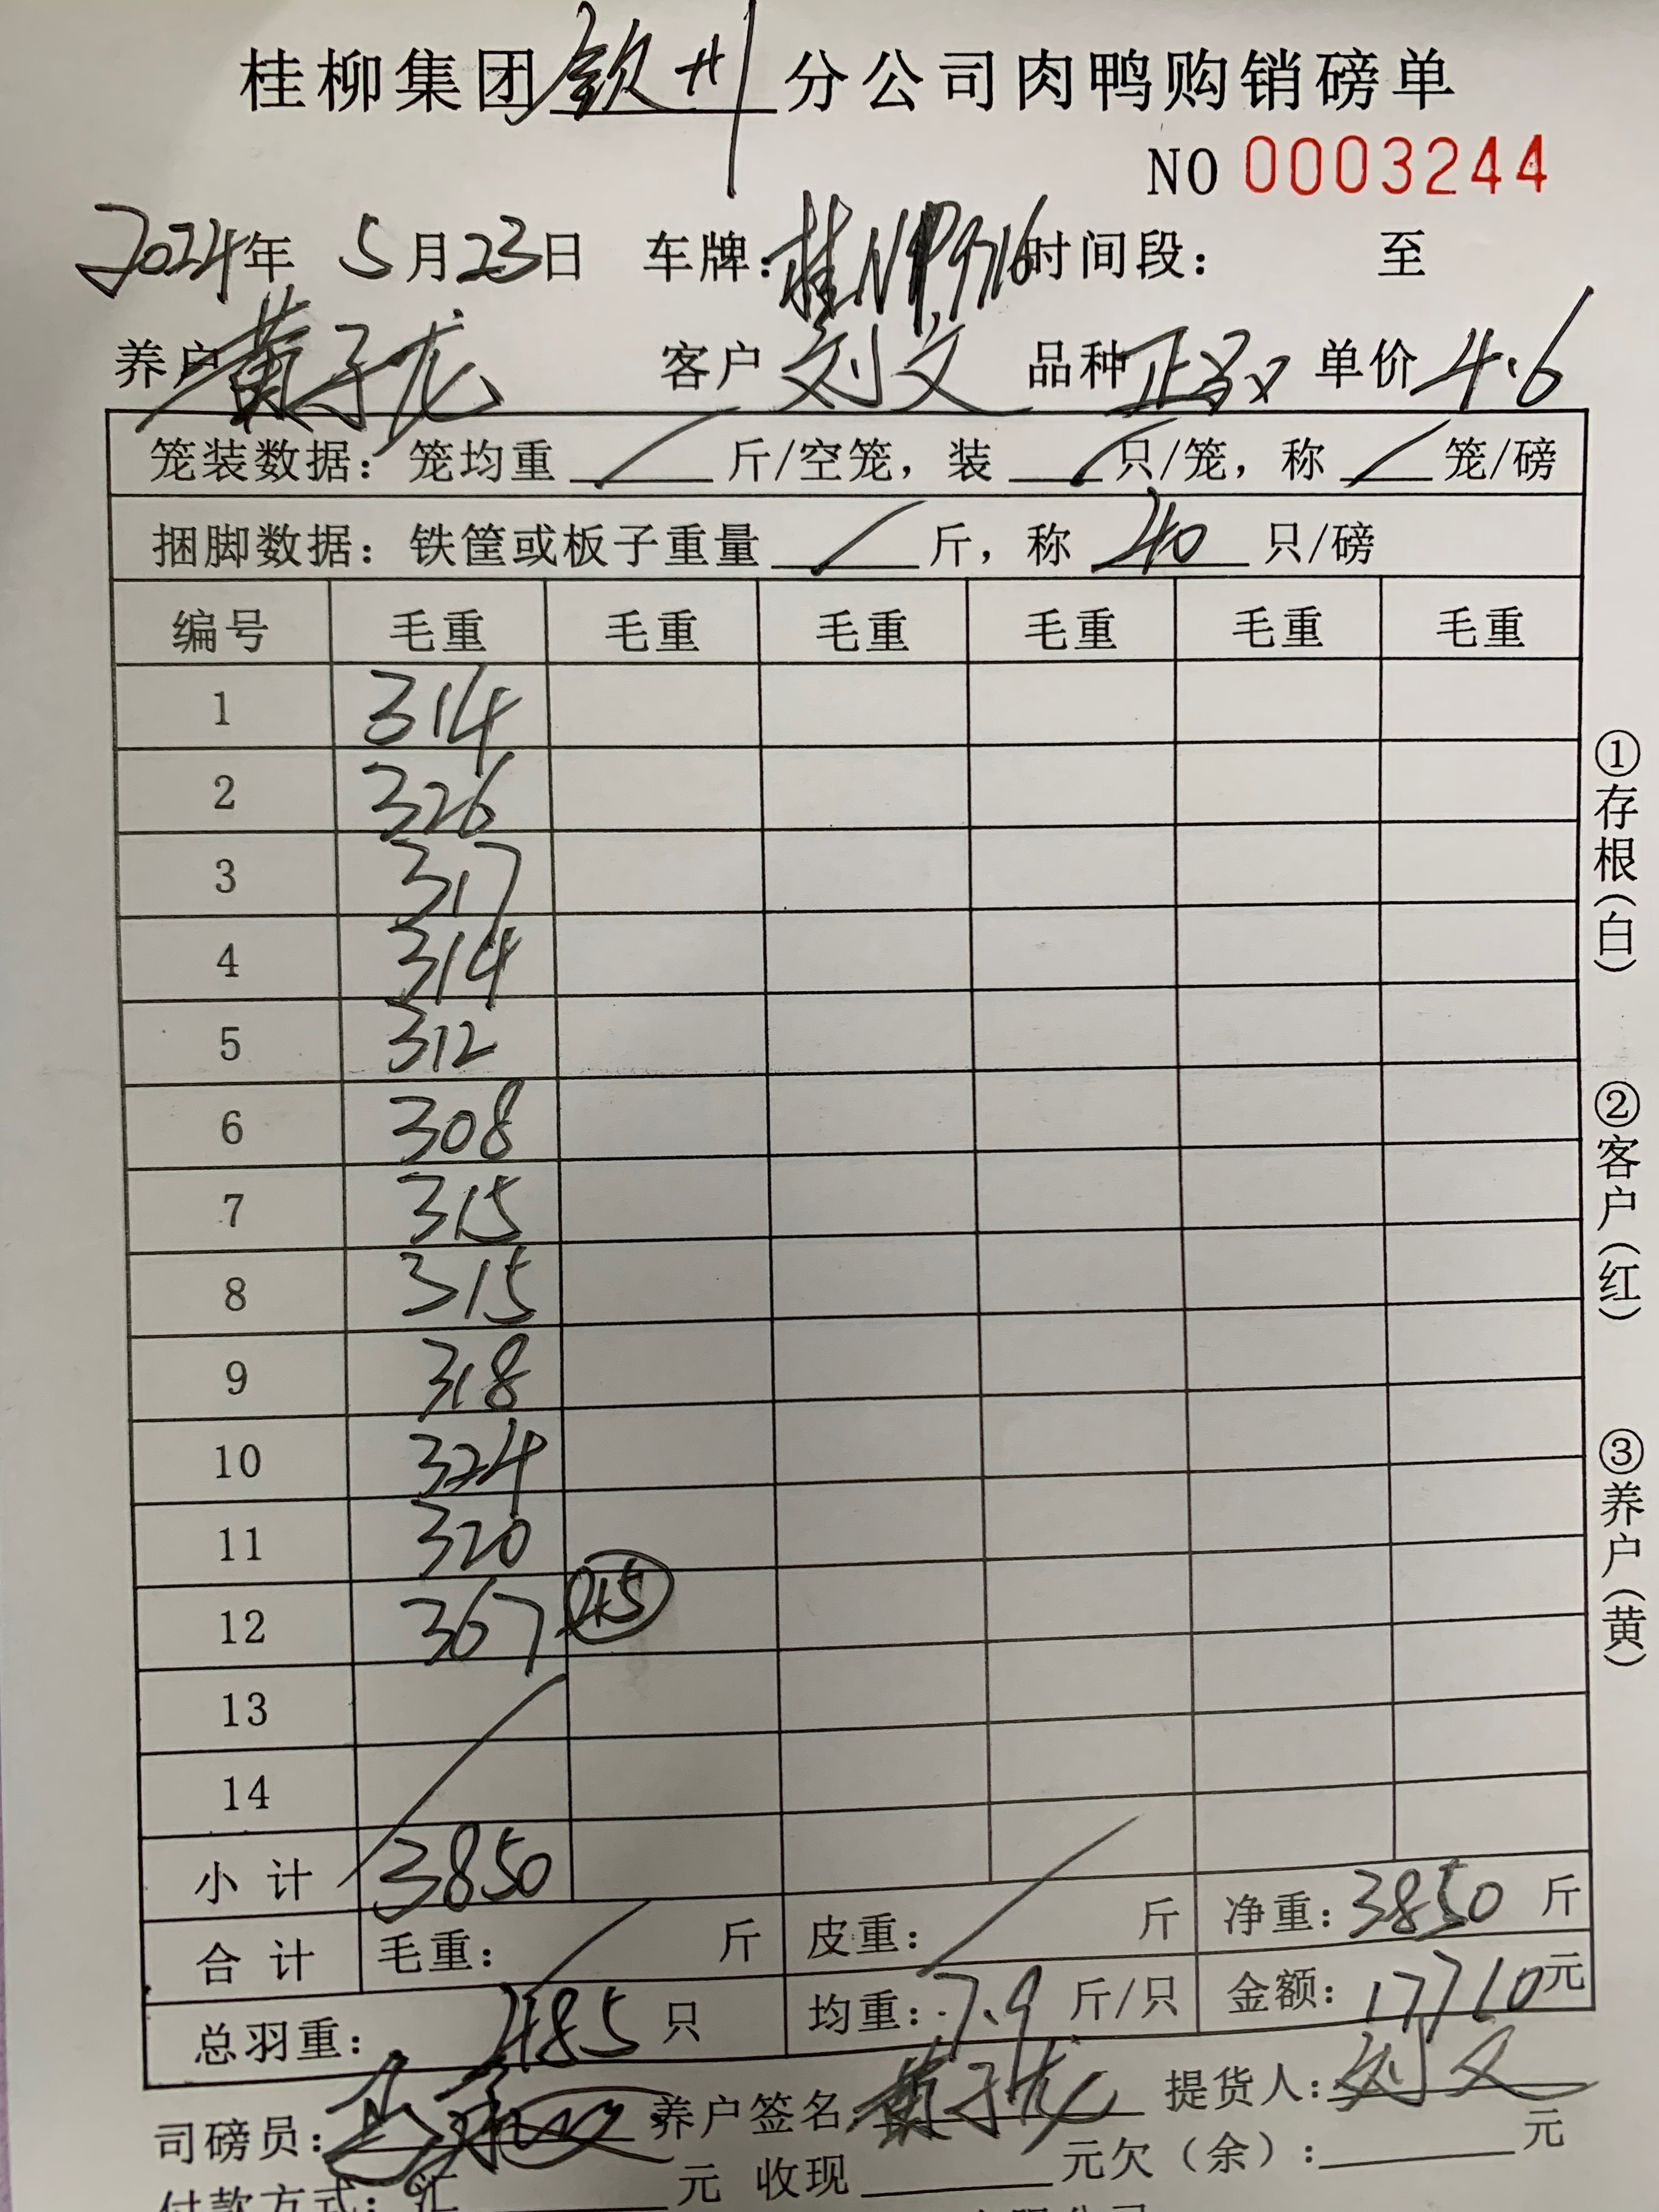 桂柳集团钦州分公司肉鸭购销磅单
NO 0003244
2024年 5月23日 车牌:桂NP9716时间段: 至
养户黄子龙 客户 刘文 品种 单价4.6
笼装数据: 笼均重 / 斤/空笼, 装 / 只/笼, 称 / 笼/磅
捆脚数据: 铁筐或板子重量 / 斤, 称 40 只/磅
编号 毛重 毛重 毛重 毛重 毛重 毛重
1 314
2 326
3 317
4 314
5 312
6 308
7 315
8 315
9 318
10 324
11 320
12 367 45
13
14
小计 3850
合计 毛重: 斤 皮重: 斤 净重: 3850 斤
总羽重: 485 只 均重: 7.9 斤/只 金额: 17710元
司磅员: 养户签名 黄子龙 提货人: 刘文
付款方式: 汇 元 收现 元欠(余): 元
①存根(白)
②客户(红)
③养户(黄)